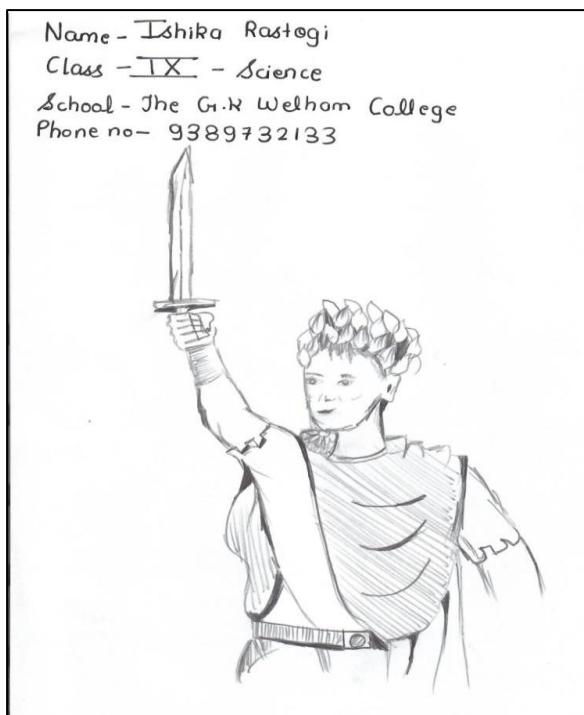 Name - Ishika Rastogi
Class - IX - Science
School - The G.K Welham College
Phone no - 9389732133